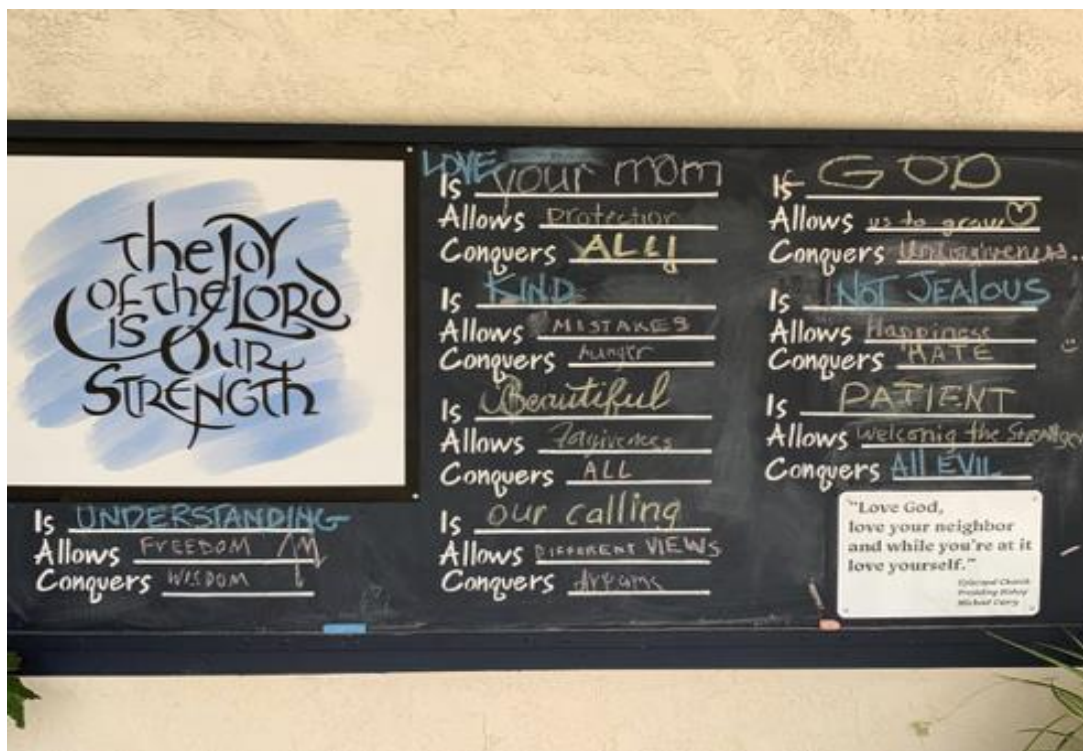 the Joy
OF the LORD
IS OUR
STRENGTH
Is UNDERSTANDING
Allows FREEDOM
Conquers WISDOM
LOVE
Is your mom
Allows Protection
Conquers ALLY
Is KIND
Allows MISTAKES
Conquers hunger
Is Beautiful
Allows Forgiveness
Conquers ALL
Is our calling
Allows DIFFERENT VIEWS
Conquers dreams
Is GOD
Allows us to grow
Conquers Unforgiveness...
Is NOT JEALOUS
Allows Happiness
Conquers HATE
Is PATIENT
Allows welconig the Stranger
Conquers All EVIL
"Love God,
love your neighbor
and while you're at it
love yourself."
Episcopal Church
Presiding Bishop
Michael Curry